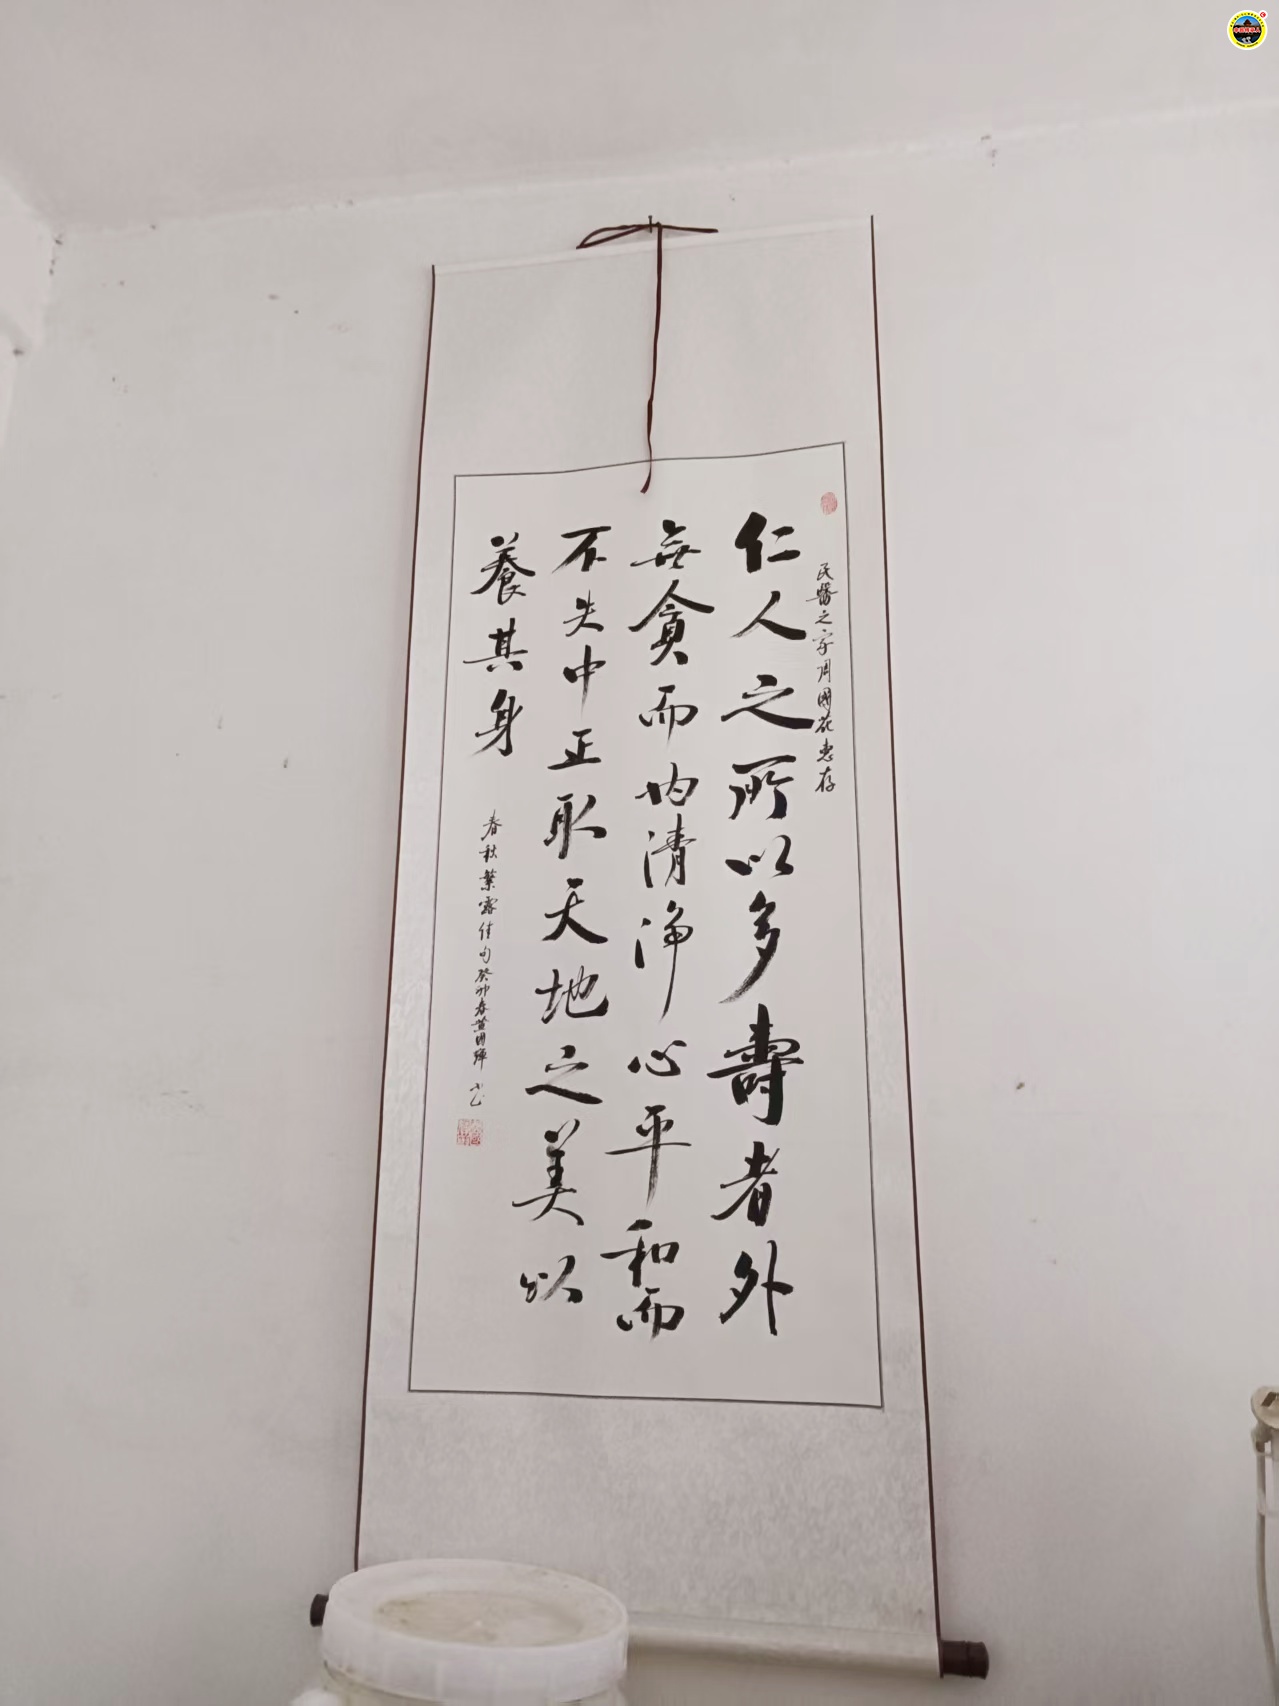 民醫之家周國花惠存
仁人之所以多壽者外
無貪而内清淨心平和而
不失中正取天地之美以
養其身
春秋繁露佳句癸卯春黄國輝书